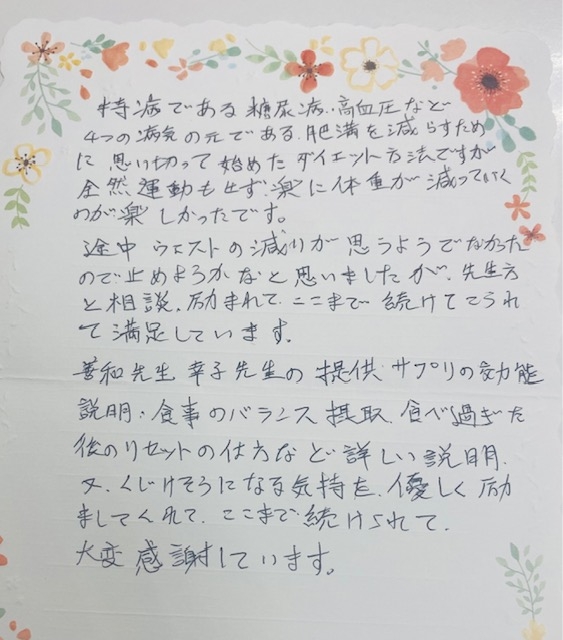 持病である糖尿病.高血圧など
4つの病気の元である.肥満を減らすため
に思い切って始めたダイエット方法ですが
全然運動もせず.楽に体重が減っていく
のが楽しかったです。
途中ウェストの減りが思うようでなかった
ので止めようかなと思いましたが.先生方
と相談.励まれて.ここまで続けてこられ
て満足しています.
善和先生 幸子先生の提供サプリの効能
説明.食事のバランス摂取.食べ過ぎた
後のリセットの仕方など詳しい説明.
又.くじけそうになる気持を.優しく励
ましてくれて.ここまで続けられて.
大変感謝しています。